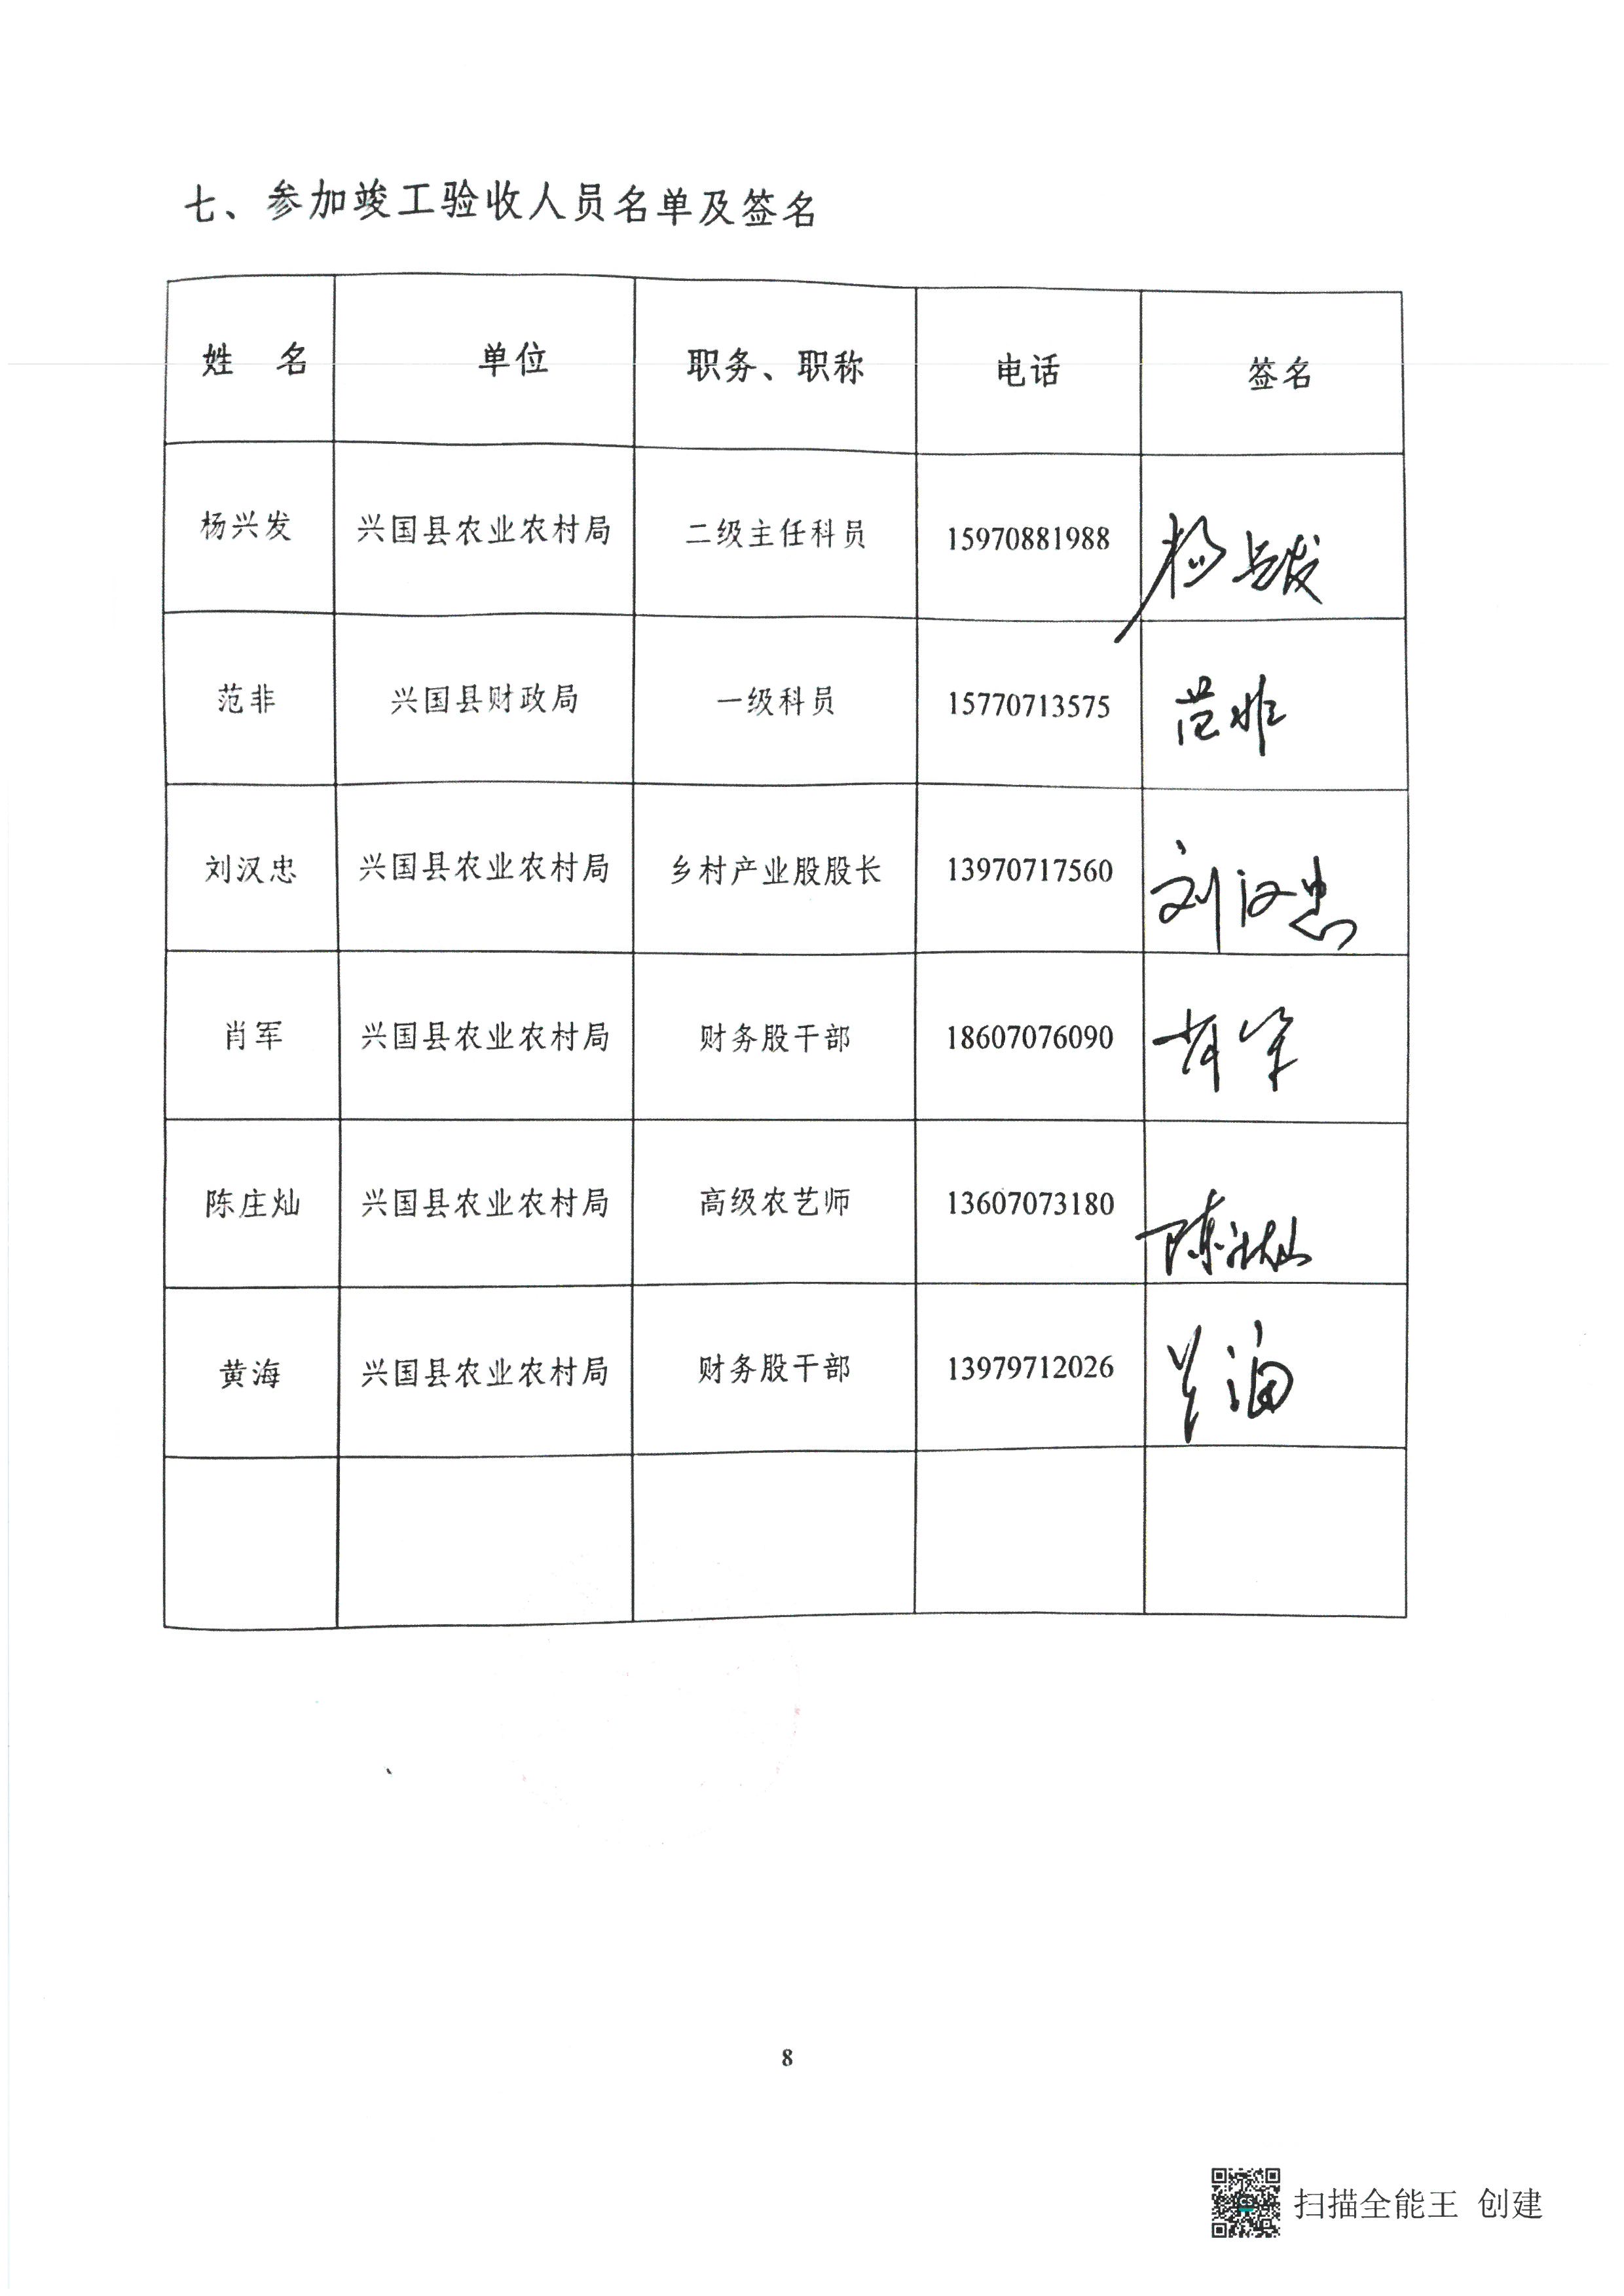 七、参加竣工验收人员名单及签名
姓 名 单位 职务、职称 电话 签名
杨兴发 兴国县农业农村局 二级主任科员 15970881988 杨兴发
范非 兴国县财政局 一级科员 15770713575 范非
刘汉忠 兴国县农业农村局 乡村产业股股长 13970717560 刘汉忠
肖军 兴国县农业农村局 财务股干部 18607076090 肖军
陈庄灿 兴国县农业农村局 高级农艺师 13607073180 陈庄灿
黄海 兴国县农业农村局 财务股干部 13979712026 黄海
8
扫描全能王 创建